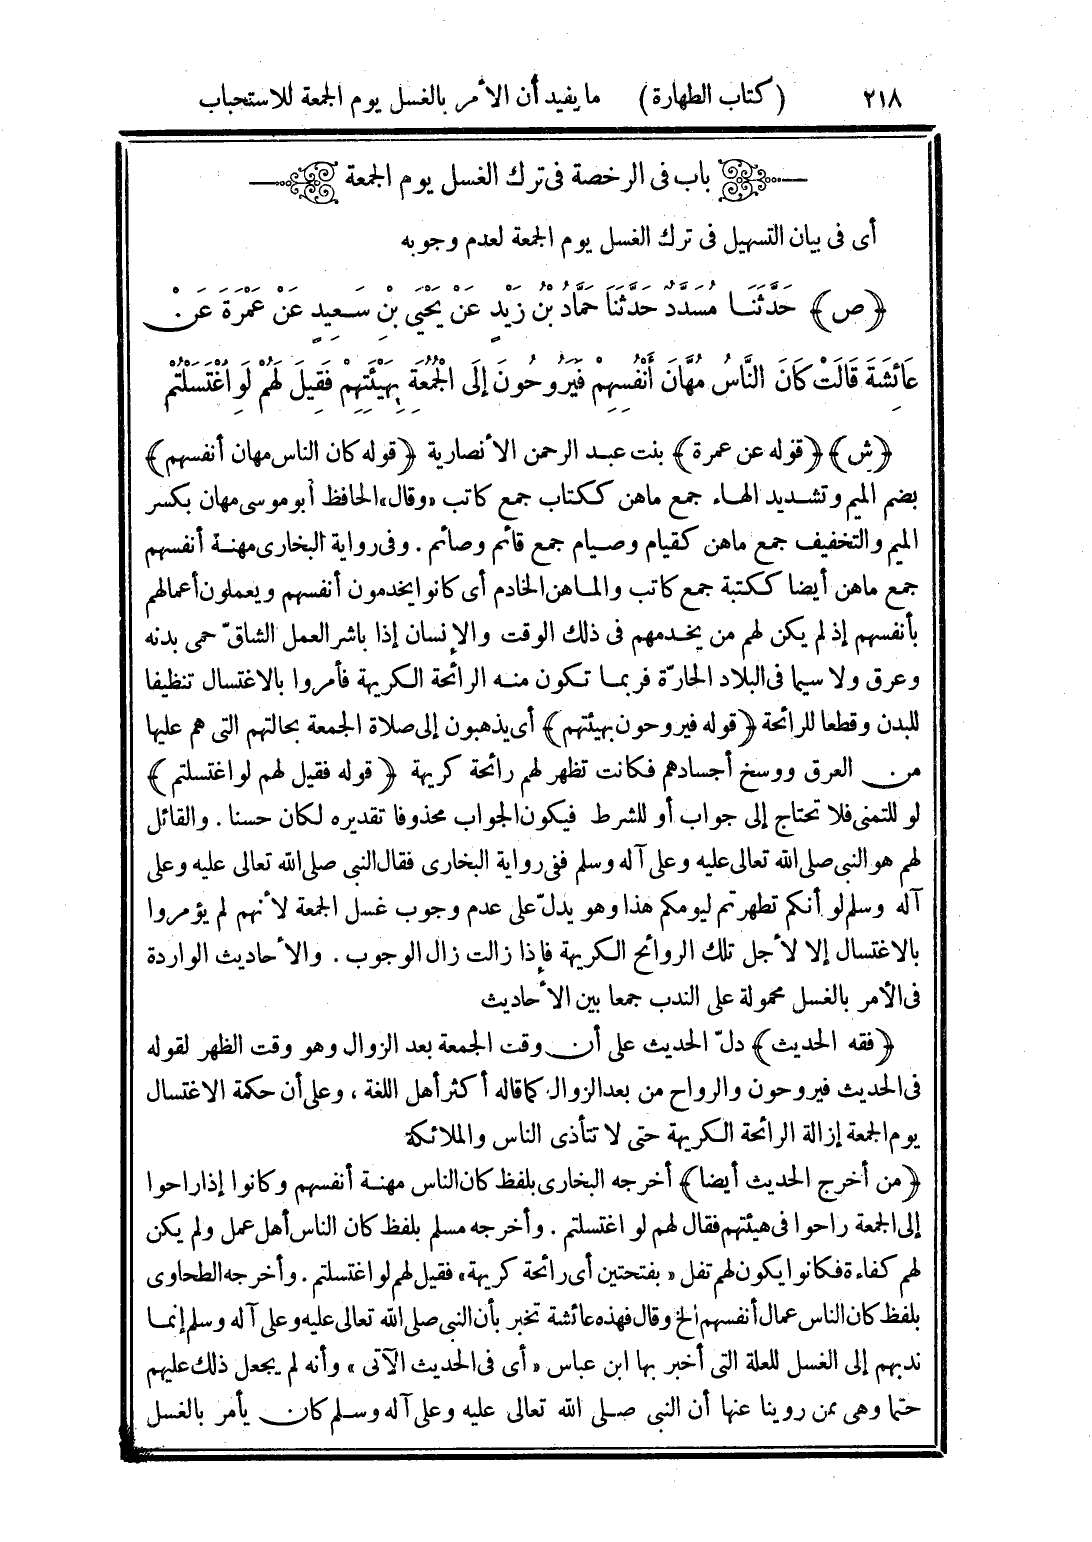 ٢١٨ (كتاب الطهارة) ما يفيد أن الأمر بالغسل يوم الجمعة للاستحباب
باب فى الرخصة فى ترك الغسل يوم الجمعة
أى فى بيان التسهيل فى ترك الغسل يوم الجمعة لعدم وجوبه
﴿ص﴾ حَدَّثَنَا مُسَدَّدٌ حَدَّثَنَا حَمَّادُ بْنُ زَيْدٍ عَنْ يَحْيَى بْنِ سَعِيدٍ عَنْ عَمْرَةَ عَنْ
عَائِشَةَ قَالَتْ كَانَ النَّاسُ مُهَّانَ أَنْفُسِهِمْ فَيَرُوحُونَ إِلَى الْجُمُعَةِ بِهَيْئَتِهِمْ فَقِيلَ لَهُمْ لَوِ اغْتَسَلْتُمْ
﴿ش﴾ ﴿قوله عن عمرة﴾ بنت عبد الرحمن الأنصارية ﴿قوله كان الناس مهان أنفسهم﴾
بضم الميم وتشديد الهاء جمع ماهن ككتاب جمع كاتب «وقال» الحافظ أبوموسى مهان بكسر
الميم والتخفيف جمع ماهن كقيام وصيام جمع قائم وصائم . وفى رواية البخارى مهنة أنفسهم
جمع ماهن أيضا ككتبة جمع كاتب والماهن الخادم أى كانوا يخدمون أنفسهم ويعملون أعمالهم
بأنفسهم إذ لم يكن لهم من يخدمهم فى ذلك الوقت والإنسان إذا باشر العمل الشاقّ حمى بدنه
وعرق ولا سيما فى البلاد الحارّة فربما تكون منه الرائحة الكريهة فأمروا بالاغتسال تنظيفا
للبدن وقطعا للرائحة ﴿قوله فيروحون بهيئتهم﴾ أى يذهبون إلى صلاة الجمعة بحالتهم التى هم عليها
من العرق ووسخ أجسادهم فكانت تظهر لهم رائحة كريهة ﴿قوله فقيل لهم لو اغتسلتم﴾
لو للتمنى فلا تحتاج إلى جواب أو للشرط فيكون الجواب محذوفا تقديره لكان حسنا . والقائل
لهم هو النبى صلى الله تعالى عليه وعلى آله وسلم ففى رواية البخارى فقال النبى صلى الله تعالى عليه وعلى
آله وسلم لو أنكم تطهرتم ليومكم هذا وهو يدلّ على عدم وجوب غسل الجمعة لأنهم لم يؤمروا
بالاغتسال إلا لأجل تلك الروائح الكريهة فإذا زالت زال الوجوب . والأحاديث الواردة
فى الأمر بالغسل محمولة على الندب جمعا بين الأحاديث
﴿فقه الحديث﴾ دلّ الحديث على أن وقت الجمعة بعد الزوال وهو وقت الظهر لقوله
فى الحديث فيروحون والرواح من بعد الزوال كما قاله أكثر أهل اللغة ، وعلى أن حكمة الاغتسال
يوم الجمعة إزالة الرائحة الكريهة حتى لا تتأذى الناس والملائكة
﴿من أخرج الحديث أيضا﴾ أخرجه البخارى بلفظ كان الناس مهنة أنفسهم وكانوا إذا راحوا
إلى الجمعة راحوا فى هيئتهم فقال لهم لو اغتسلتم . وأخرجه مسلم بلفظ كان الناس أهل عمل ولم يكن
لهم كفاءة فكانوا يكون لهم تفل «بفتحتين أى رائحة كريهة» فقيل لهم لو اغتسلتم . وأخرجه الطحاوى
بلفظ كان الناس عمال أنفسهم الخ وقال فهذه عائشة تخبر بأن النبى صلى الله تعالى عليه وعلى آله وسلم إنما
ندبهم إلى الغسل للعلة التى أخبر بها ابن عباس «أى فى الحديث الآتى» وأنه لم يجعل ذلك عليهم
حتما وهى ممن روينا عنها أن النبى صلى الله تعالى عليه وعلى آله وسلم كان يأمر بالغسل